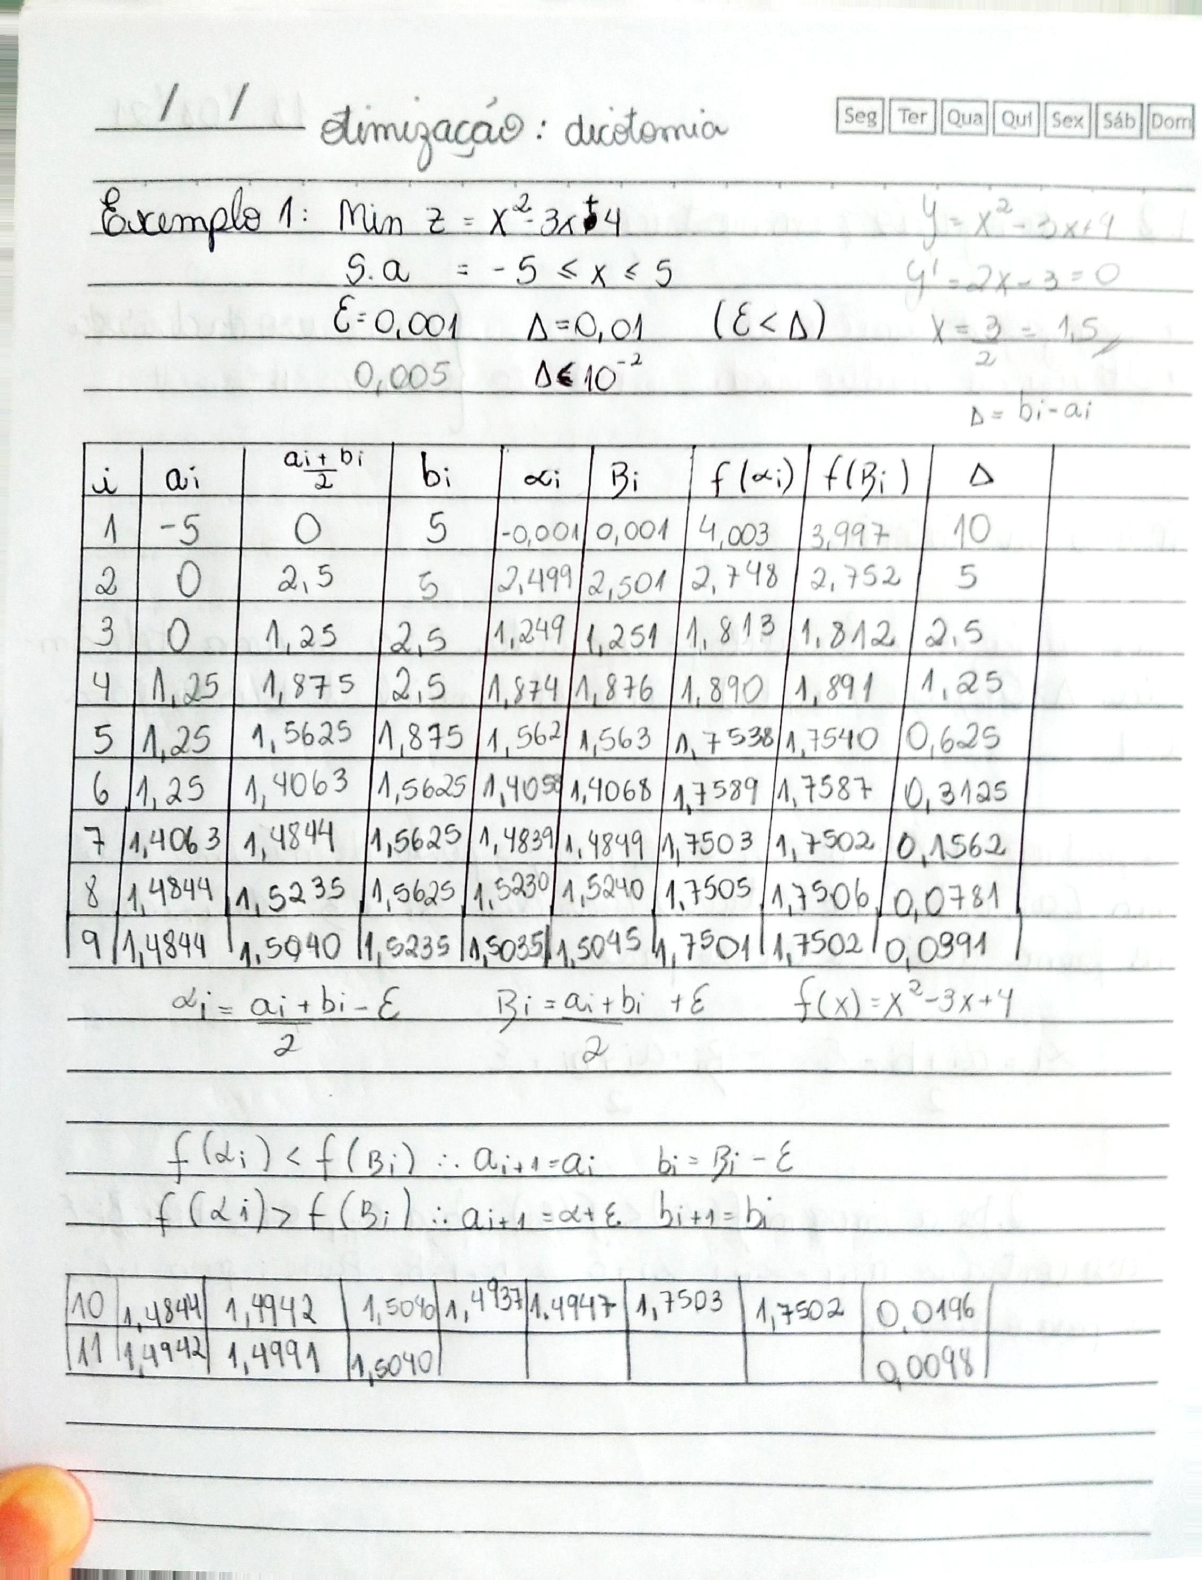 / / otimização: dicotomia Seg Ter Qua Qui Sex Sáb Dom
Exemplo 1: Min z = x² - 3x + 4 y = x² - 3x + 4
S.a = -5 ≤ x ≤ 5 y' = 2x - 3 = 0
Ɛ = 0,001 Δ = 0,01 (Ɛ < Δ) x = 3/2 = 1,5
0,005 Δ < 10⁻²
Δ = bi - ai
i ai (ai + bi)/2 bi αi Bi f(αi) f(Bi) Δ
1 -5 0 5 -0,001 0,001 4,003 3,997 10
2 0 2,5 5 2,499 2,501 2,748 2,752 5
3 0 1,25 2,5 1,249 1,251 1,813 1,812 2,5
4 1,25 1,875 2,5 1,874 1,876 1,890 1,891 1,25
5 1,25 1,5625 1,875 1,562 1,563 1,7538 1,7540 0,625
6 1,25 1,4063 1,5625 1,4058 1,4068 1,7589 1,7587 0,3125
7 1,4063 1,4844 1,5625 1,4839 1,4849 1,7503 1,7502 0,1562
8 1,4844 1,5235 1,5625 1,5230 1,5240 1,7505 1,7506 0,0781
9 1,4844 1,5040 1,5235 1,5035 1,5045 1,7501 1,7502 0,0391
αi = (ai + bi)/2 - Ɛ Bi = (ai + bi)/2 + Ɛ f(x) = x² - 3x + 4
f(αi) < f(Bi) ∴ ai+1 = ai bi = Bi - Ɛ
f(αi) > f(Bi) ∴ ai+1 = α + Ɛ bi+1 = bi
10 1,4844 1,4942 1,5040 1,4937 1,4947 1,7503 1,7502 0,0196
11 1,4942 1,4991 1,5040 0,0098